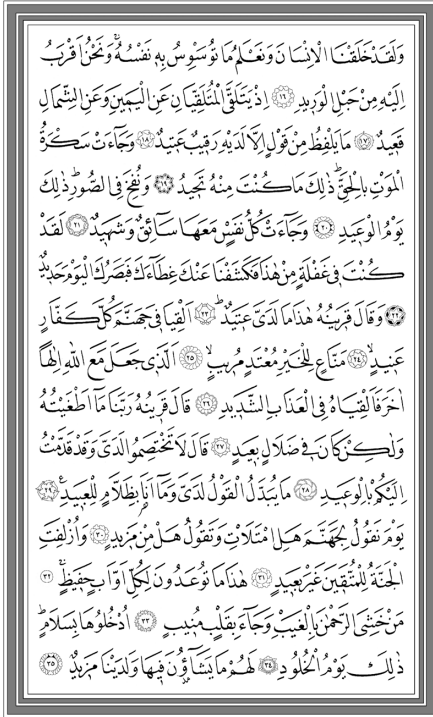 وَلَقَدْ خَلَقْنَا الْاِنْسَانَ وَنَعْلَمُ مَا تُوَسْوِسُ بِهٖ نَفْسُهُۚ وَنَحْنُ اَقْرَبُ
اِلَيْهِ مِنْ حَبْلِ الْوَرٖيدِ ﴿١٦﴾ اِذْ يَتَلَقَّى الْمُتَلَقِّيَانِ عَنِ الْيَمٖينِ وَعَنِ الشِّمَالِ
قَعٖيدٌ ﴿١٧﴾ مَا يَلْفِظُ مِنْ قَوْلٍ اِلَّا لَدَيْهِ رَقٖيبٌ عَتٖيدٌ ﴿١٨﴾ وَجَٓاءَتْ سَكْرَةُ
الْمَوْتِ بِالْحَقِّؕ ذٰلِكَ مَا كُنْتَ مِنْهُ تَحٖيدُ ﴿١٩﴾ وَنُفِخَ فِي الصُّورِؕ ذٰلِكَ
يَوْمُ الْوَعٖيدِ ﴿٢٠﴾ وَجَٓاءَتْ كُلُّ نَفْسٍ مَعَهَا سَٓائِقٌ وَشَهٖيدٌ ﴿٢١﴾ لَقَدْ
كُنْتَ فٖي غَفْلَةٍ مِنْ هٰذَا فَكَشَفْنَا عَنْكَ غِطَٓاءَكَ فَبَصَرُكَ الْيَوْمَ حَدٖيدٌ
﴿٢٢﴾ وَقَالَ قَرٖينُهُ هٰذَا مَا لَدَيَّ عَتٖيدٌؕ ﴿٢٣﴾ اَلْقِيَا فٖي جَهَنَّمَ كُلَّ كَفَّارٍ
عَنٖيدٍۙ ﴿٢٤﴾ مَنَّاعٍ لِلْخَيْرِ مُعْتَدٍ مُرٖيبٍۙ ﴿٢٥﴾ اَلَّذٖي جَعَلَ مَعَ اللّٰهِ اِلٰهًا
اٰخَرَ فَاَلْقِيَاهُ فِي الْعَذَابِ الشَّدٖيدِ ﴿٢٦﴾ قَالَ قَرٖينُهُ رَبَّنَا مَٓا اَطْغَيْتُهُ
وَلٰكِنْ كَانَ فٖي ضَلَالٍ بَعٖيدٍ ﴿٢٧﴾ قَالَ لَا تَخْتَصِمُوا لَدَيَّ وَقَدْ قَدَّمْتُ
اِلَيْكُمْ بِالْوَعٖيدِ ﴿٢٨﴾ مَا يُبَدَّلُ الْقَوْلُ لَدَيَّ وَمَٓا اَنَا۬ بِظَلَّامٍ لِلْعَبٖيدِ ﴿٢٩﴾
يَوْمَ نَقُولُ لِجَهَنَّمَ هَلِ امْتَلَاْتِ وَتَقُولُ هَلْ مِنْ مَزٖيدٍ ﴿٣٠﴾ وَاُزْلِفَتِ
الْجَنَّةُ لِلْمُتَّقٖينَ غَيْرَ بَعٖيدٍ ﴿٣١﴾ هٰذَا مَا تُوعَدُونَ لِكُلِّ اَوَّابٍ حَفٖيظٍۚ ﴿٣٢﴾
مَنْ خَشِيَ الرَّحْمٰنَ بِالْغَيْبِ وَجَٓاءَ بِقَلْبٍ مُنٖيبٍ ﴿٣٣﴾ اُدْخُلُوهَا بِسَلَامٍؕ
ذٰلِكَ يَوْمُ الْخُلُودِ ﴿٣٤﴾ لَهُمْ مَا يَشَٓاؤُ۫نَ فٖيهَا وَلَدَيْنَا مَزٖيدٌ ﴿٣٥﴾